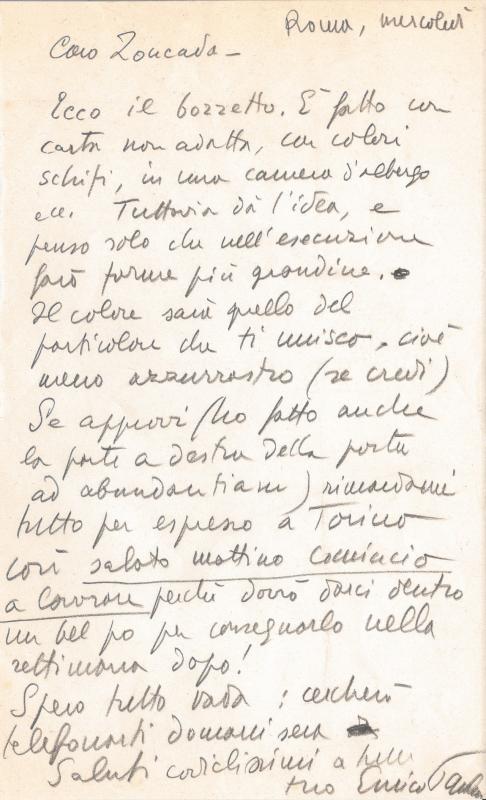 Roma, mercoledì
Caro Zoncada –
Ecco il bozzetto. È fatto con
carta non adatta, con colori
schifi, in una camera d'albergo
ecc. Tuttavia dà l'idea, e
penso solo che nell'esecuzione
farò forme più grandine.
Il colore sarà quello del
particolare che ti unisco, cioè
meno azzurrastro (se credi)
Se approvi (ho fatto anche
la parte a destra della porta
ad abundantiam) rimandami
tutto per espresso a Torino
così sabato mattino comincio
a lavorare perché dovrò darci dentro
un bel po per consegnarlo nella
settimana dopo!
Spero tutto vada: cercherò
telefonarti domani sera
Saluti cordialissimi a tutti
tuo Enrico